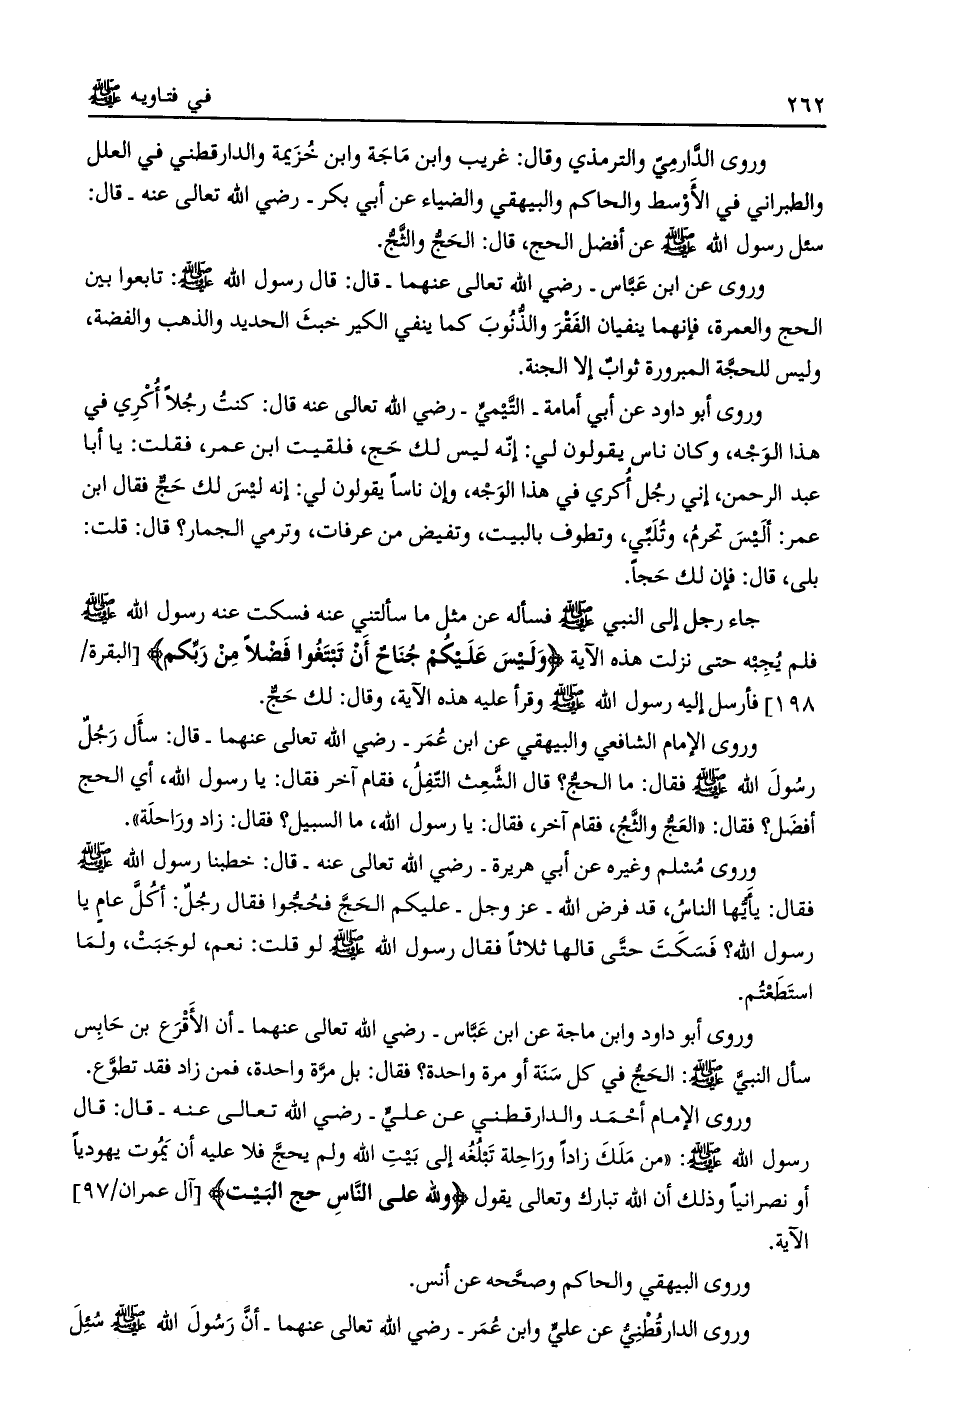 ٢٦٢ في فتاويه ﷺ
وروى الدَّارميّ والترمذي وقال: غريب وابن مَاجَة وابن خُزَيمة والدارقطني في العلل
والطبراني في الأَوْسط والحاكم والبيهقي والضياء عن أبي بكر ـ رضي الله تعالى عنه ـ قال:
سئل رسول الله ﷺ عن أفضل الحج، قال: الحَجُّ والثَّجُّ.
وروى عن ابن عَبَّاس ـ رضي الله تعالى عنهما ـ قال: قال رسول الله ﷺ: تابعوا بين
الحج والعمرة، فإنهما ينفيان الفَقْرَ والذُّنُوبَ كما ينفي الكير خبثَ الحديد والذهب والفضة،
وليس للحجَّة المبرورة ثوابٌ إلا الجنة.
وروى أبو داود عن أبي أمامة ـ التَّيْميِّ ـ رضي الله تعالى عنه قال: كنتُ رجُلاً أُكْرِي في
هذا الوَجْه، وكان ناس يقولون لي: إنّه ليس لك حَج، فلقيت ابن عمر، فقلت: يا أبا
عبد الرحمن، إني رجُل أُكري في هذا الوَجْه، وإن ناساً يقولون لي: إنه ليْسَ لك حَجٌّ فقال ابن
عمر: أَلَيْسَ تحرمُ، وتُلَبِّي، وتطوف بالبيت، وتفيض من عرفات، وترمي الجمار؟ قال: قلت:
بلى، قال: فإن لك حَجاً.
جاء رجل إلى النبي ﷺ فسأله عن مثل ما سألتني عنه فسكت عنه رسول الله ﷺ
فلم يُجِبْه حتى نزلت هذه الآية ﴿وَلَيْسَ عَلَيْكُمْ جُنَاحٌ أَنْ تَبْتَغُوا فَضْلاً مِنْ رَبِّكم﴾ [البقرة/
١٩٨] فأرسل إليه رسول الله ﷺ وقرأ عليه هذه الآية، وقال: لك حَجٌّ.
وروى الإمام الشافعي والبيهقي عن ابن عُمَر ـ رضي الله تعالى عنهما ـ قال: سأَل رَجُلٌ
رسُولَ الله ﷺ فقال: ما الحجُّ؟ قال الشَّعِث التّفِلُ، فقام آخر فقال: يا رسول الله، أي الحج
أفضَل؟ فقال: «العَجُّ والثَّجُّ، فقام آخر، فقال: يا رسول الله، ما السبيل؟ فقال: زاد ورَاحلَة».
وروى مُسْلم وغيره عن أبي هريرة ـ رضي الله تعالى عنه ـ قال: خطبنا رسول الله ﷺ
فقال: يأَيُّها الناسُ، قد فرض الله ـ عز وجل ـ عليكم الحَجَّ فحُجُّوا فقال رجُلٌ: أكُلَّ عامٍ يا
رسول الله؟ فَسَكَتَ حتَّى قالها ثلاثاً فقال رسول الله ﷺ لو قلت: نعم، لوجَبَتْ، ولمَا
استَطَعْتُم.
وروى أبو داود وابن ماجة عن ابن عَبَّاس ـ رضي الله تعالى عنهما ـ أن الأَقْرَع بن حَابِس
سأل النبيَّ ﷺ: الحَجُّ في كل سَنَة أو مرة واحدة؟ فقال: بل مرَّة واحدة، فمن زاد فقد تطوَّع.
وروى الإمام أحْمَد والدارقطني عن عليٍّ ـ رضي الله تعالى عنه ـ قال: قال
رسول الله ﷺ: «من مَلَكَ زاداً ورَاحِلة تَبْلُغُه إلى بَيْتِ الله ولم يحجَّ فلا عليه أن يَمُوت يهودياً
أو نصرانياً وذلك أن الله تبارك وتعالى يقول ﴿ولله على النَّاسِ حج البَيْت﴾ [آل عمران/٩٧]
الآية.
وروى البيهقي والحاكم وصحَّحه عن أنس.
وروى الدارقُطْنِيُّ عن عليٍّ وابن عُمَر ـ رضي الله تعالى عنهما ـ أنَّ رَسُولَ الله ﷺ سُئِلَ